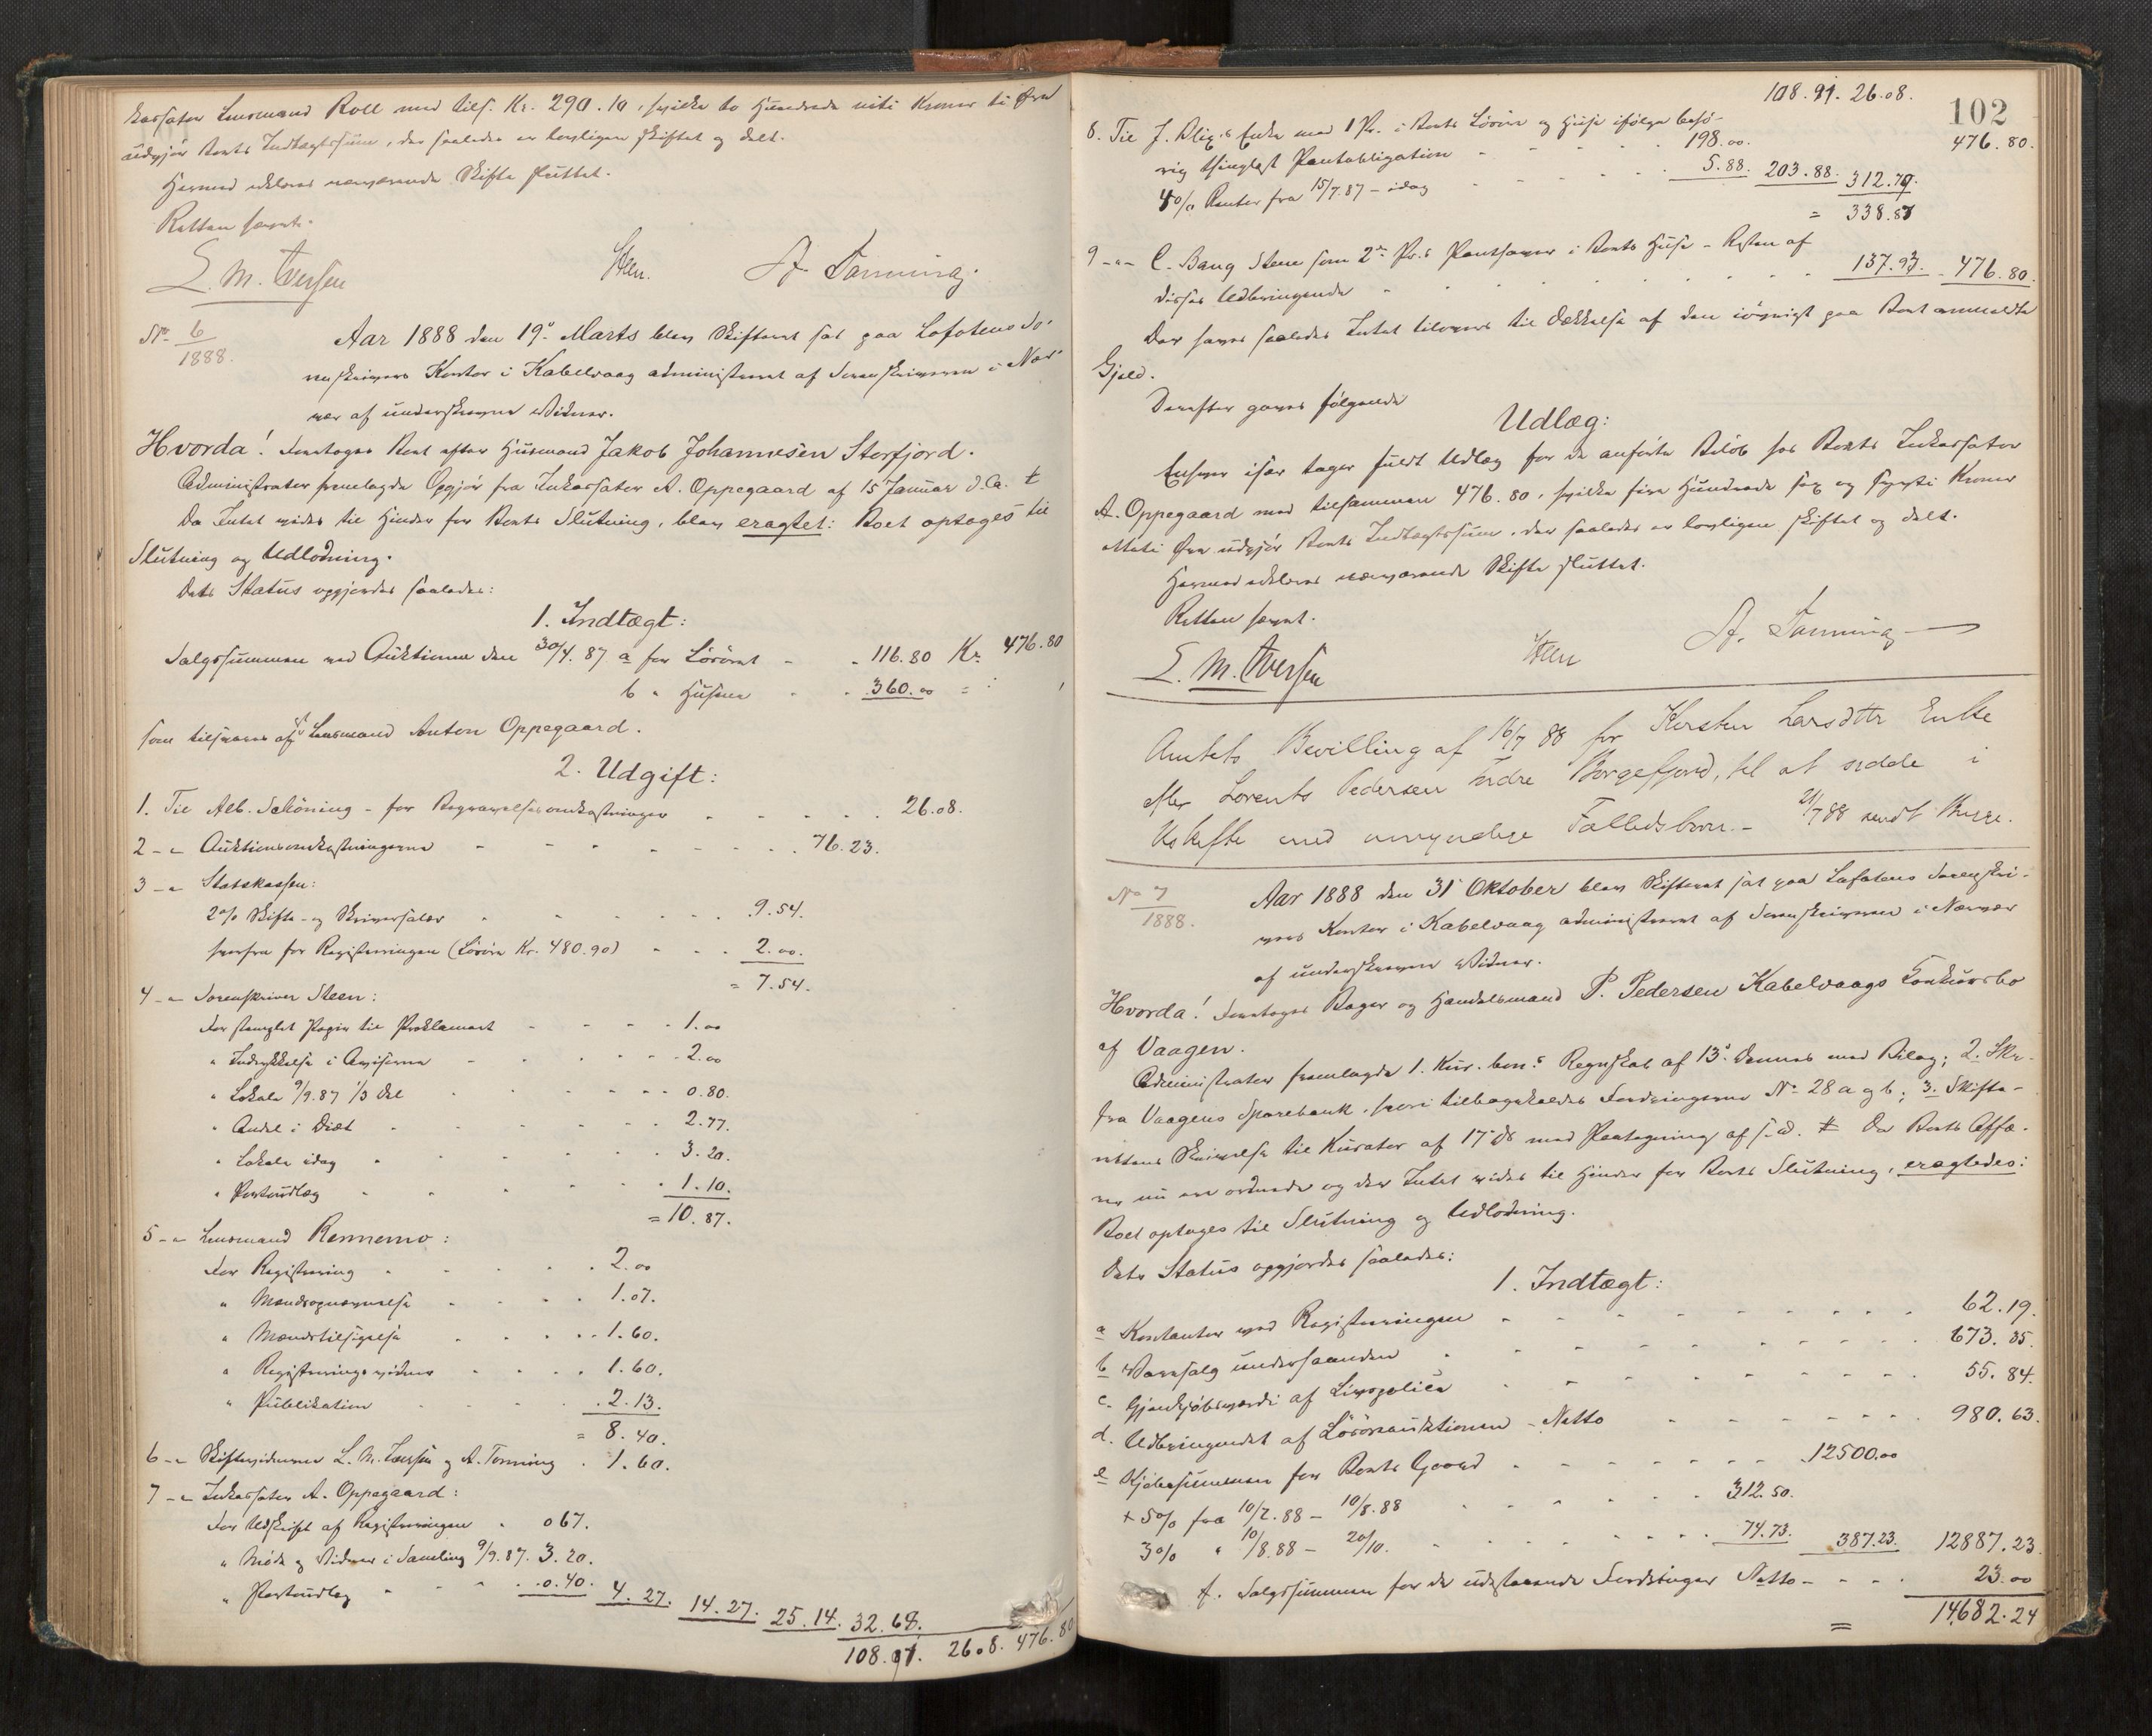 kassator Lensmand Roll med tils. Kr. 290.10, hvilke to Hundrede niti Kroner ti Øre
udgjør Boets Indtægtssum, der saaledes er lovligen skiftet og delt.
Hermed erklæres nærværende Skifte sluttet.
Retten hævet.
L. M. Iversen Steen. A. Tønning.
No 6/1888.
Aar 1888 den 19de Marts blev Skifteret sat paa Lofotens So-
renskrivers Kontor i Kabelvaag administreret af Sorenskriveren i Nær-
vær af underskrevne Vidner.
Hvorda! Foretoges Boet efter Husmand Jakob Johannesen Storfjord.
Administrator fremlagde Opgjør fra Inkassator A. Oppegaard af 15 Januar d.A.
Da Intet vides til Hinder for Boets Slutning, blev eragtet: Boet optages til
Slutning og Udlodning.
Dets Status opgjordes saaledes:
1. Indtægt:
Salgssummen ved Auktionen den 30/4.87 a for Løsøret - 116.80 Kr. 476.80
b " Husene 360.00 =
som tilsvares af Lensmand Anton Oppegaard.
2. Udgift:
1. Til Alb. Schöning - for Begravelsesomkostninger 26.08.
2 - " Auktionsomkostningerne 76.23.
3 - " Statskassen:
2% Skifte- og Skriversalær 9.54.
herfra for Registreringen (Løsøre Kr. 480.90) 2.00.
= 7.54.
4 - " Sorenskriver Steen:
For stemplet Papir til Proklamaet 1.00
" Indrykkelse i Aviserne 2.00
" Lokale 9/9.87 1/3 Del 0.80.
" Andel i Diæt 2.77.
" Lokale idag 3.20.
" Portoudlæg 1.10.
= 10.87.
5 - " Lensmand Rennemo:
For Registrering 2.00
" Mændsopnævnelse 1.07.
" Mændstilsigelse 1.60.
" Registreringsvidner 1.60.
" Publikation 2.13.
= 8.40.
6 - " Skiftevidnerne L. M. Iversen og A. Tønning 1.60.
7 - " Inkassator A. Oppegaard:
For Udskrift af Registreringen 0 67.
" Møde og Vidner i Samling 9/9.87. 3.20.
" Portoudlæg 0.40. 4.27. 14.27. 25.14. 32.68.
108.91. 26.08. 476.80
108.91. 26.08.
102
476.80.
8. Til J. Blix's Enke med 1 Pr. i Boets Løsøre og Huse ifølge behø-
rig thinglæst Pantobligation 198.00.
4% Renter fra 15/7.87 - idag 5.88. 203.88. 312.79.
= 338.87
9 - " C. Bang Steen som 2den Pr.s Panthaver i Boets Huse - Resten af
disses Udbringende 137.93. 476.80.
Der haves saaledes Intet tilovers til Dækkelse af den iøvrigt paa Boet anmeldte
Gjæld.
Derefter gaves følgende
Udlæg:
Enhver især tager fuldt Udlæg for de anførte Beløb hos Boets Inkassator
A. Oppegaard med tilsammen 476.80, hvilke fire Hundrede sex og syvti Kroner
otteti Øre udgjør Boets Indtægtssum, der saaledes er lovligen skiftet og delt.
Hermed erklæres nærværende Skifte sluttet.
Retten hævet.
L. M. Iversen Steen A. Tønning
Amtets Bevilling af 16/7 88 for Kirsten Larsdtr Enke
efter Lorents Pedersen Indre Borgefjord, til at sidde i
Uskifte med umyndige Fællesbørn. - 21/7 88 sendt
No 7/1888.
Aar 1888 den 31 Oktober blev Skifteret sat paa Lofotens Sorenskri-
vers Kontor i Kabelvaag administreret af Sorenskriveren i Nærvær
af underskrevne Vidner.
Hvorda! Foretoges Bager og Handelsmand P. Pedersen Kabelvaags Konkursbo
af Vaagen.
Administrator fremlagde 1. Kur. bon.s Regnskab af 13de dennes med Bilag; 2. Skr.
fra Vaagens Sparebank, hvori tilbagekaldes Fordringerne No 28 a og b; 3. Skifte-
rettens Skrivelse til Kurator af 17 ds med Paategning af s.D. Da Boets Affæ-
rer nu ere ordnede og der Intet vides til Hinder for Boets Slutning, eragtedes:
Boet optages til Slutning og Udlodning.
Dets Status opgjordes saaledes:
1. Indtægt:
a Kontanter ved Registreringen 62.19.
b Varesalg underhaanden 673.35.
c. Gjenkjøbsværdi af Livspolice 55.84.
d. Udbringendet af Løsøreauktionen - Netto 980.63.
e Kjøbesummen for Boets Gaard 12500.00
+ 5% fra 10/2.88 - 10/8.88 312.50.
3% " 10/8.88 - 20/10. 74.73. 387.23. 12887.23
f. Salgssummen for de udestaaende Fordringer Netto - 23.00
= 14682.24